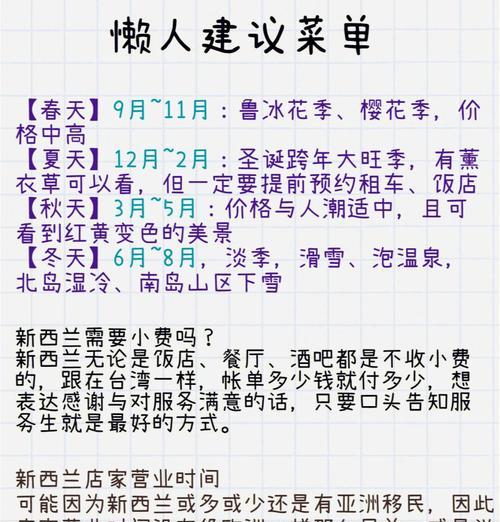 懒人建议菜单
【春天】9月~11月：鲁冰花季、樱花季，价
格中高
【夏天】12月~2月：圣诞跨年大旺季，有薰
衣草可以看，但一定要提前预约租车、饭店
【秋天】3月~5月：价格与人潮适中，且可
看到红黄变色的美景
【冬天】6月~8月，淡季，滑雪、泡温泉，
北岛湿冷、南岛山区下雪
新西兰需要小费吗？
新西兰无论是饭店、餐厅、酒吧都是不收小费
的，跟在台湾一样，帐单多少钱就付多少，想
表达感谢与对服务满意的话，只要口头告知服
务生就是最好的方式。
新西兰店家营业时间
可能因为新西兰或多或少还是有亚洲移民，因此